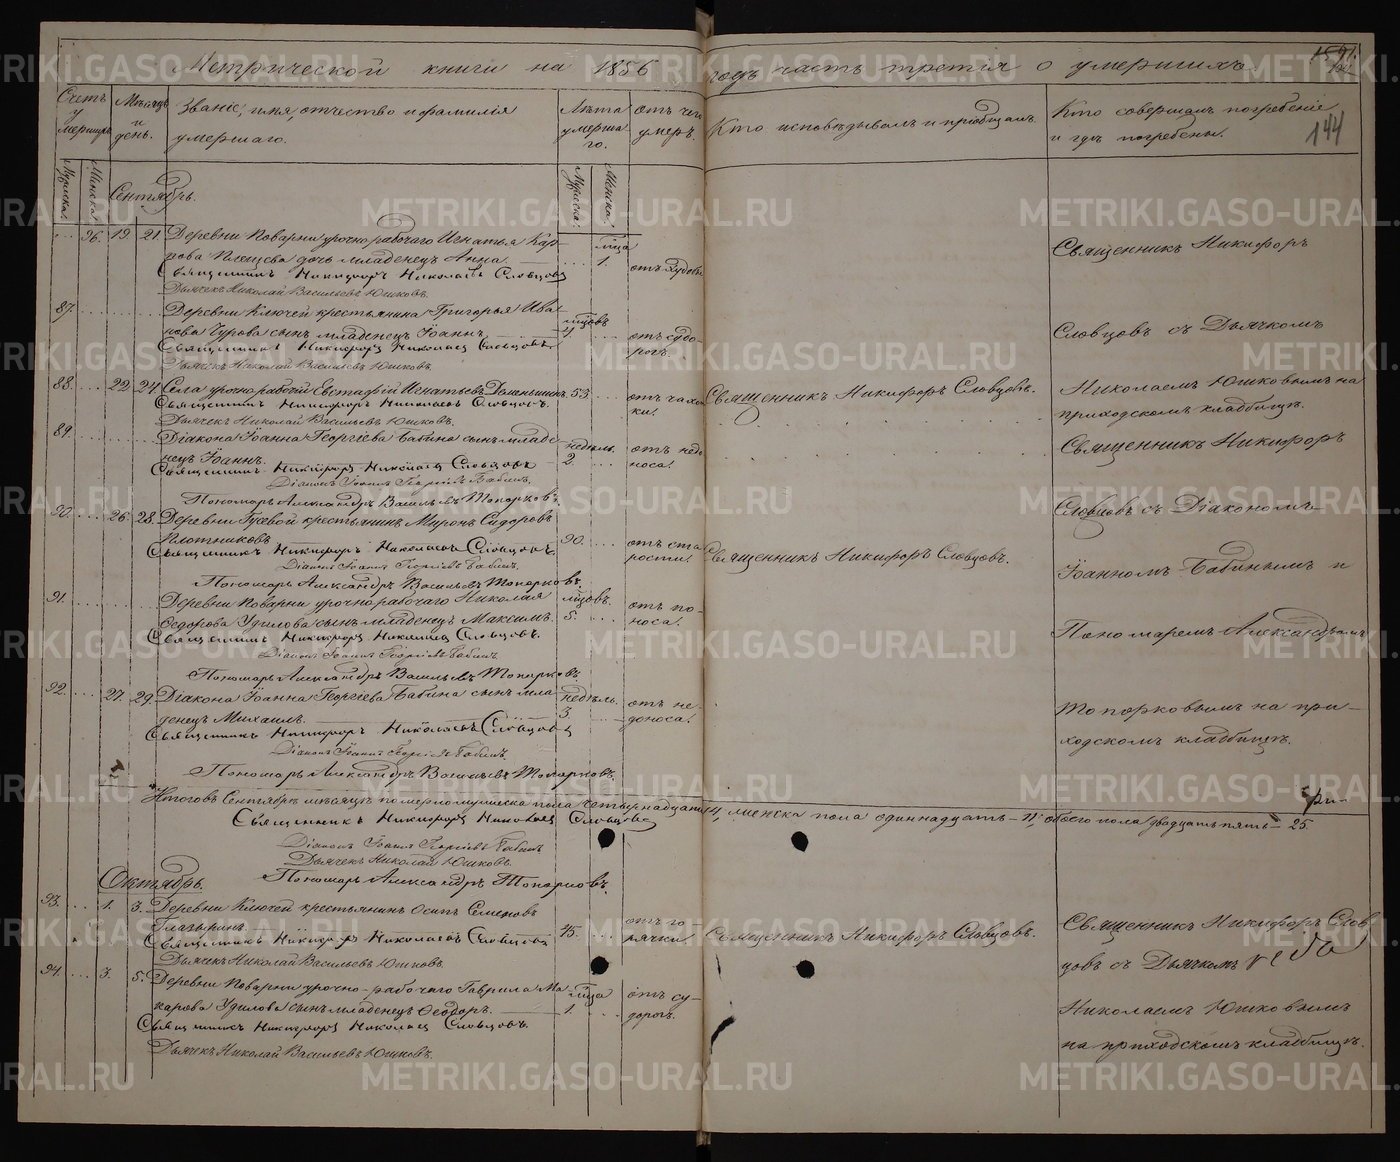 Метрической книги на 1856 годъ часть третія о умершихъ
144
Счетъ умершихъ
Мѣсяцъ и день.
Званіе, имя, отчество и фамилія умершаго.
Лѣта умершаго.
отъ чего умеръ.
Кто исповѣдывалъ и пріобщалъ.
Кто совершалъ погребеніе и гдѣ погребены.
Мужеска. Женска.
Мужеска. Женска.
Сентябрь.
36. 19. 21. Деревни Поварни урочно рабочаго Игнатья Кар-
пова Плещева дочь младенецъ Анна. мѣсца 1.
Священникъ Никифоръ Николаевъ Словцовъ
Дьячекъ Николай Васильевъ Юшковъ.
Священникъ Никифоръ
87. Деревни Ключей крестьянина Григорья Ива-
нова Чурова сынъ младенецъ Іоаннъ. мѣсцовъ отъ судо-
рогъ.
Священникъ Никифоръ Николаевъ Словцовъ
Дьячекъ Николай Васильевъ Юшковъ.
Словцовъ съ Дьячкомъ
88. 22. 24. Села урочно рабочій Евстафій Игнатьевъ 53. отъ чахот-
ки. Священникъ Никифоръ Словцовъ.
Священникъ Никифоръ Николаевъ Словцовъ.
Дьячекъ Николай Васильевъ Юшковъ.
Николаемъ Юшковымъ на
приходскомъ кладбищѣ.
89. Діакона Іоанна Георгіева Бабина сынъ младе-
нецъ Іоаннъ. недѣль 2. отъ недо-
носа.
Священникъ Никифоръ Николаевъ Словцовъ
Діаконъ Іоаннъ Георгіевъ Бабинъ.
Пономарь Александръ Васильевъ Топорковъ.
Священникъ Никифоръ
90. 26. 28. Деревни Гуевой крестьянинъ Миронъ Сидоровъ
Плотниковъ 90. отъ ста-
рости. Священникъ Никифоръ Словцовъ.
Священникъ Никифоръ Николаевъ Словцовъ
Діаконъ Іоаннъ Георгіевъ Бабинъ.
Пономарь Александръ Васильевъ Топорковъ.
Словцовъ съ Діакономъ
Іоанномъ Бабинымъ и
91. Деревни Поварни урочно рабочаго Николая
Ѳедорова Удилова сынъ младенецъ Максимъ. мѣсцовъ. 5. отъ по-
носа.
Священникъ Никифоръ Николаевъ Словцовъ.
Діаконъ Іоаннъ Георгіевъ Бабинъ
Пономарь Александръ Васильевъ Топорковъ.
Пономаремъ Александромъ
92. 27. 29. Діакона Іоанна Георгіева Бабина сынъ мла-
денецъ Михаилъ. недѣль. 3. отъ не-
доноса.
Священникъ Никифоръ Николаевъ Словцовъ
Діаконъ Іоаннъ Георгіевъ Бабинъ.
Пономарь Александръ Васильевъ Топорковъ.
Топорковымъ на при-
ходскомъ кладбищѣ.
Итого въ Сентябрѣ мѣсяцѣ померло мужеска пола четырнадцать 14, женска пола одиннадцать – 11, обоего пола двадцать пять – 25.
Священникъ Никифоръ Николаевъ Словцовъ
Діаконъ Іоаннъ Георгіевъ Бабинъ
Дьячекъ Николай Юшковъ.
Пономарь Александръ Топорковъ.
Октябрь.
93. 1. 3. Деревни Ключей крестьянинъ Осипъ Семеновъ
45. отъ го-
рячки. Священникъ Никифоръ Словцовъ.
Священникъ Никифоръ Николаевъ Словцовъ
Дьячекъ Николай Васильевъ Юшковъ.
Священникъ Никифоръ Слов-
цовъ съ Дьячкомъ
94. 3. 5. Деревни Поварни урочно-рабочаго Гаврила Ма-
карова Удилова сынъ младенецъ Ѳеодоръ. мѣсца 1. отъ су-
дорогъ.
Священникъ Никифоръ Николаевъ Словцовъ.
Дьячекъ Николай Васильевъ Юшковъ.
Николаемъ Юшковымъ
на приходскомъ кладбищѣ.
METRIKI.GASO-URAL.RU